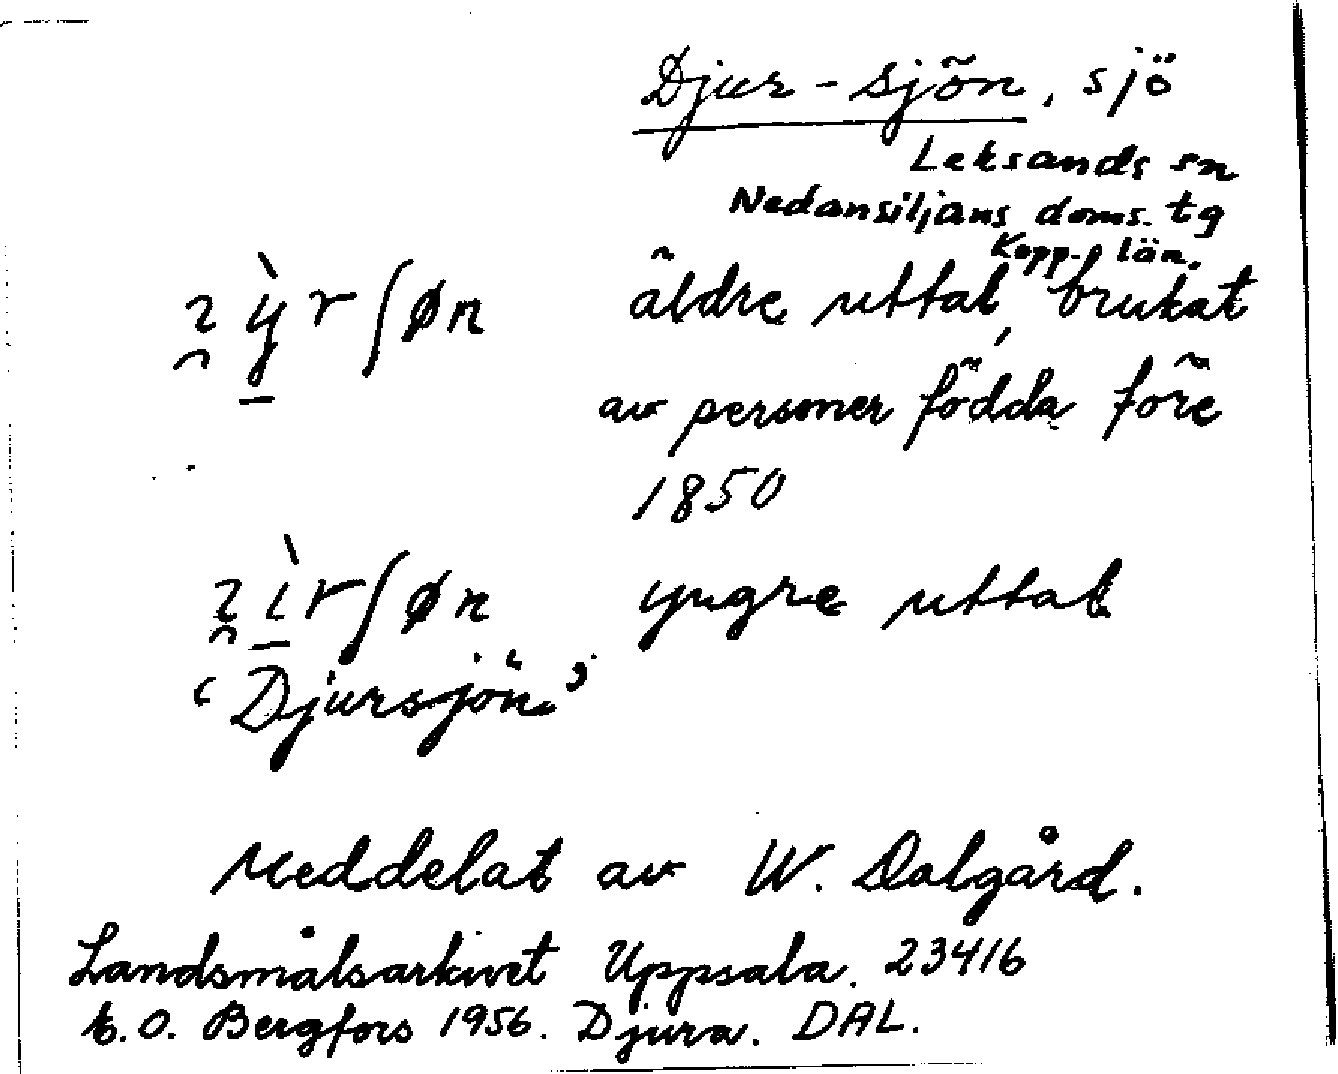 Djur-sjön, sjö
Leksands sn
Nedansiljans doms. tg
Kopp. län.
äldre uttal, brukat
av personer födda före
1850
yngre uttal
‘Djursjön’
Meddelat av W. Dalgård.
Landsmålsarkivet Uppsala. 23416
E.O. Bergfors 1956. Djura. DAL.